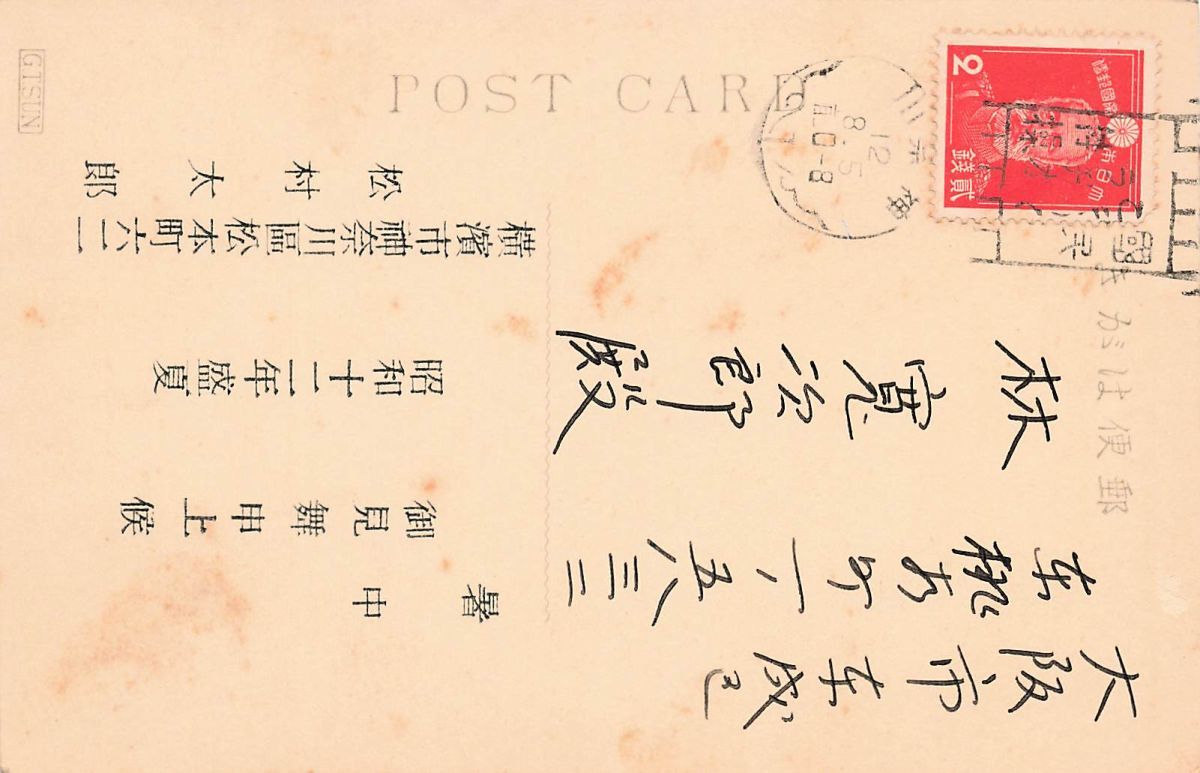 郵便はがき
大阪市東成区
東桃谷町一ノ五八三二
林寛治郎殿
暑中
御見舞申上候
昭和十二年盛夏
横濱市神奈川區松本町六二一
松村太郎
POST CARD
GTSUN
大日本帝國郵便
貳錢
2
12
8.5
0-8